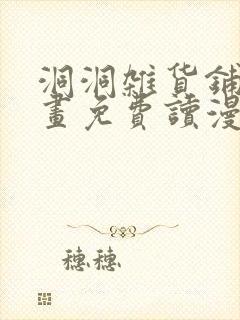 洞洞雜貨鋪
畫免費讀漫
穗穗